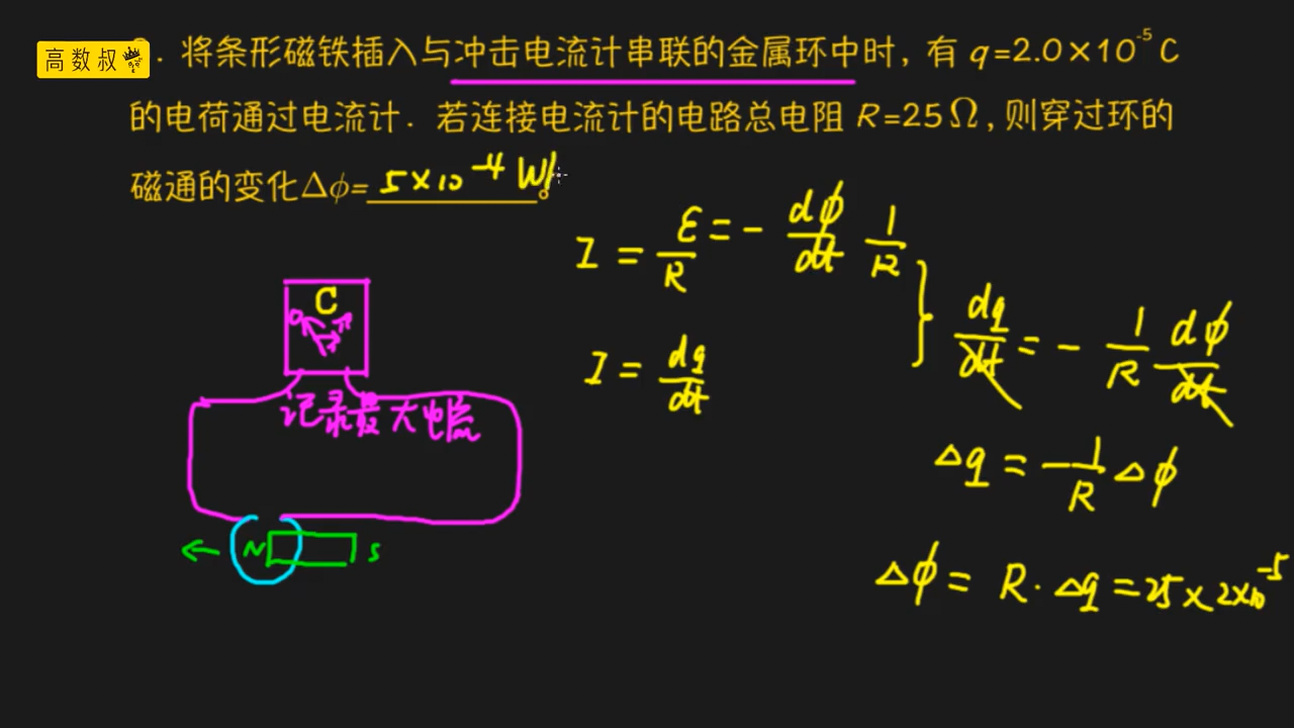 高数叔
. 将条形磁铁插入与冲击电流计串联的金属环中时, 有 q=2.0×10⁻⁵ C
的电荷通过电流计. 若连接电流计的电路总电阻 R=25Ω, 则穿过环的
磁通的变化Δϕ= 5×10⁻⁴ W
I = ε/R = - dϕ/dt 1/R
I = dq/dt
dq/dt = - 1/R dϕ/dt
Δq = - 1/R Δϕ
Δϕ = R · Δq = 25×2×10⁻⁵
C
记录最大电流
N S